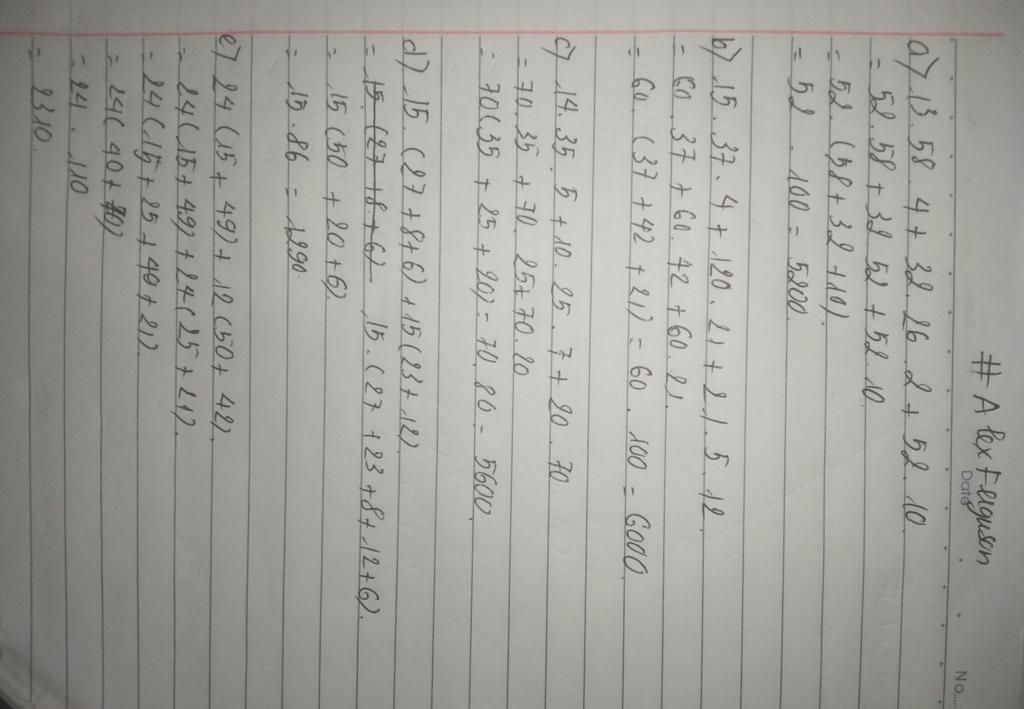 # Alex Ferguson
Date
No.
a) 13. 58. 4 + 32. 26. 2 + 52. 10
= 52. 58 + 32 52 + 52. 10
= 52. (58 + 32 + 10)
= 52. 100 = 5200.
b) 15. 37. 4 + 120. 21 + 21. 5. 12
= 60. 37 + 60. 42 + 60. 21
= 60. (37 + 42 + 21) = 60. 100 = 6000
c) 14. 35. 5 + 10. 25. 7 + 20. 70
= 70. 35 + 70. 25 + 70. 20
= 70(35 + 25 + 20) = 70. 80 = 5600
d) 15. (27 + 8 + 6) + 15(23 + 12)
= 15. (27 + 8 + 6) 15. (27 + 23 + 8 + 12 + 6).
= 15 (50 + 20 + 6)
= 15. 86 = 1290.
e) 24 (15 + 49) + 12 (50 + 42)
= 24 (15 + 49) + 24 (25 + 21).
= 24 (15 + 25 + 49 + 21)
= 24 (40 + 70)
= 24. 110
= 2310.